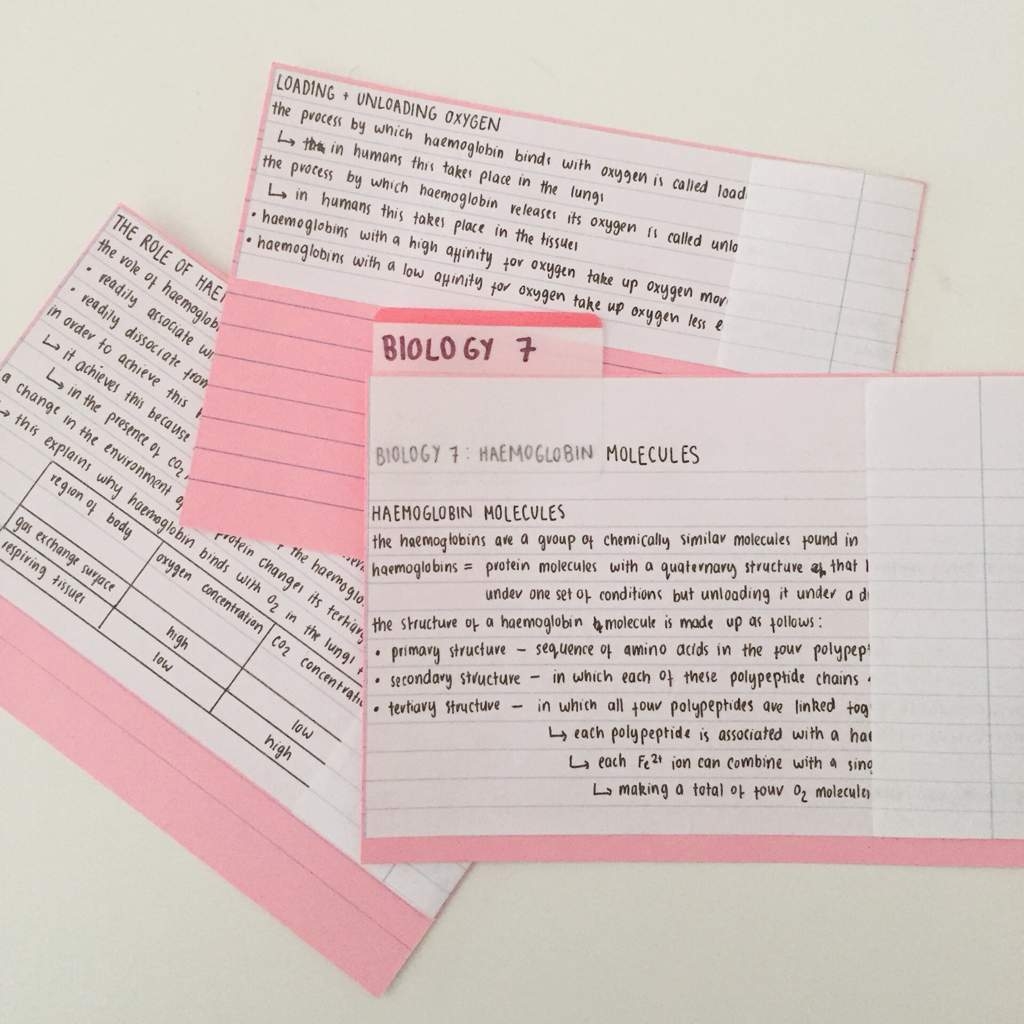 LOADING + UNLOADING OXYGEN
the process by which haemoglobin binds with oxygen is called load
↳ in humans this takes place in the lungs
the process by which haemoglobin releases its oxygen is called unlo
↳ in humans this takes place in the tissues
• haemoglobins with a high affinity for oxygen take up oxygen mor
• haemoglobins with a low affinity for oxygen take up oxygen less e
THE ROLE OF HAE
the role of haemoglob
• readily associate wi
• readily dissociate from
in order to achieve this
↳ it achieves this because
↳ in the presence of CO2
a change in the environment of
↳ this explains why haemoglobin binds with O2 in the lungs
the haemoglo
protein changes its tertiary
region of body
oxygen concentration
CO2 concentratio
gas exchange surface
high
low
respiring tissues
low
high
BIOLOGY 7
BIOLOGY 7: HAEMOGLOBIN MOLECULES
HAEMOGLOBIN MOLECULES
the haemoglobins are a group of chemically similar molecules found in
haemoglobins = protein molecules with a quaternary structure that
under one set of conditions but unloading it under a di
the structure of a haemoglobin molecule is made up as follows:
• primary structure – sequence of amino acids in the four polypep
• secondary structure – in which each of these polypeptide chains
• tertiary structure – in which all four polypeptides are linked tog
↳ each polypeptide is associated with a hae
↳ each Fe²⁺ ion can combine with a sing
↳ making a total of four O2 molecules